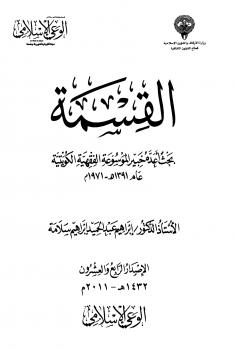 الوعي الإسلامي
وزارة الأوقاف والشؤون الإسلامية
القسمة
بحث أعده خبير الموسوعة الفقهية الكويتية
عام ١٣٩١هـ - ١٩٧١م
الأستاذ الدكتور/ إبراهيم عبد الحميد إبراهيم سلامة
الإصدار الرابع والعشرون
١٤٣٢هـ - ٢٠١١م
الوعي الإسلامي